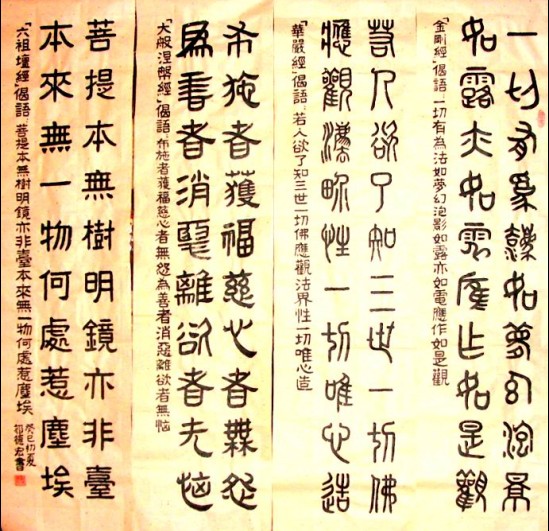 一切有為灋如夢幻泡景
如露亦如電應作如是觀
「金剛經」偈語:一切有為法如夢幻泡影如露亦如電應作如是觀
若人欲了知三世一切佛
應觀灋界性一切唯心造
「華嚴經」偈語:若人欲了知三世一切佛應觀法界性一切唯心造
布施者獲福慈心者無怨
為善者消惡離欲者无惱
「大般涅槃經」偈語:布施者獲福慈心者無怨為善者消惡離欲者無惱
菩提本無樹明鏡亦非臺
本來無一物何處惹塵埃
「六祖壇經」偈語:菩提本無樹明鏡亦非臺本來無一物何處惹塵埃
癸巳初夏